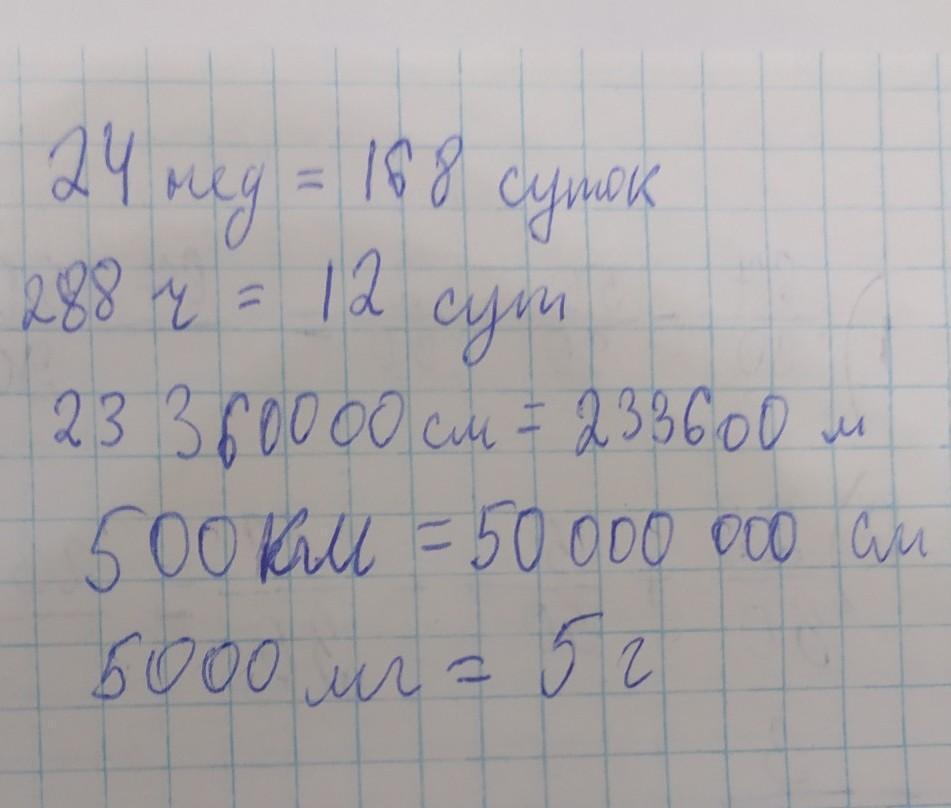 24 нед = 168 суток
288 ч = 12 сут
23 360000 см = 233600 м
500 км = 50 000 000 см
5000 мг = 5 г